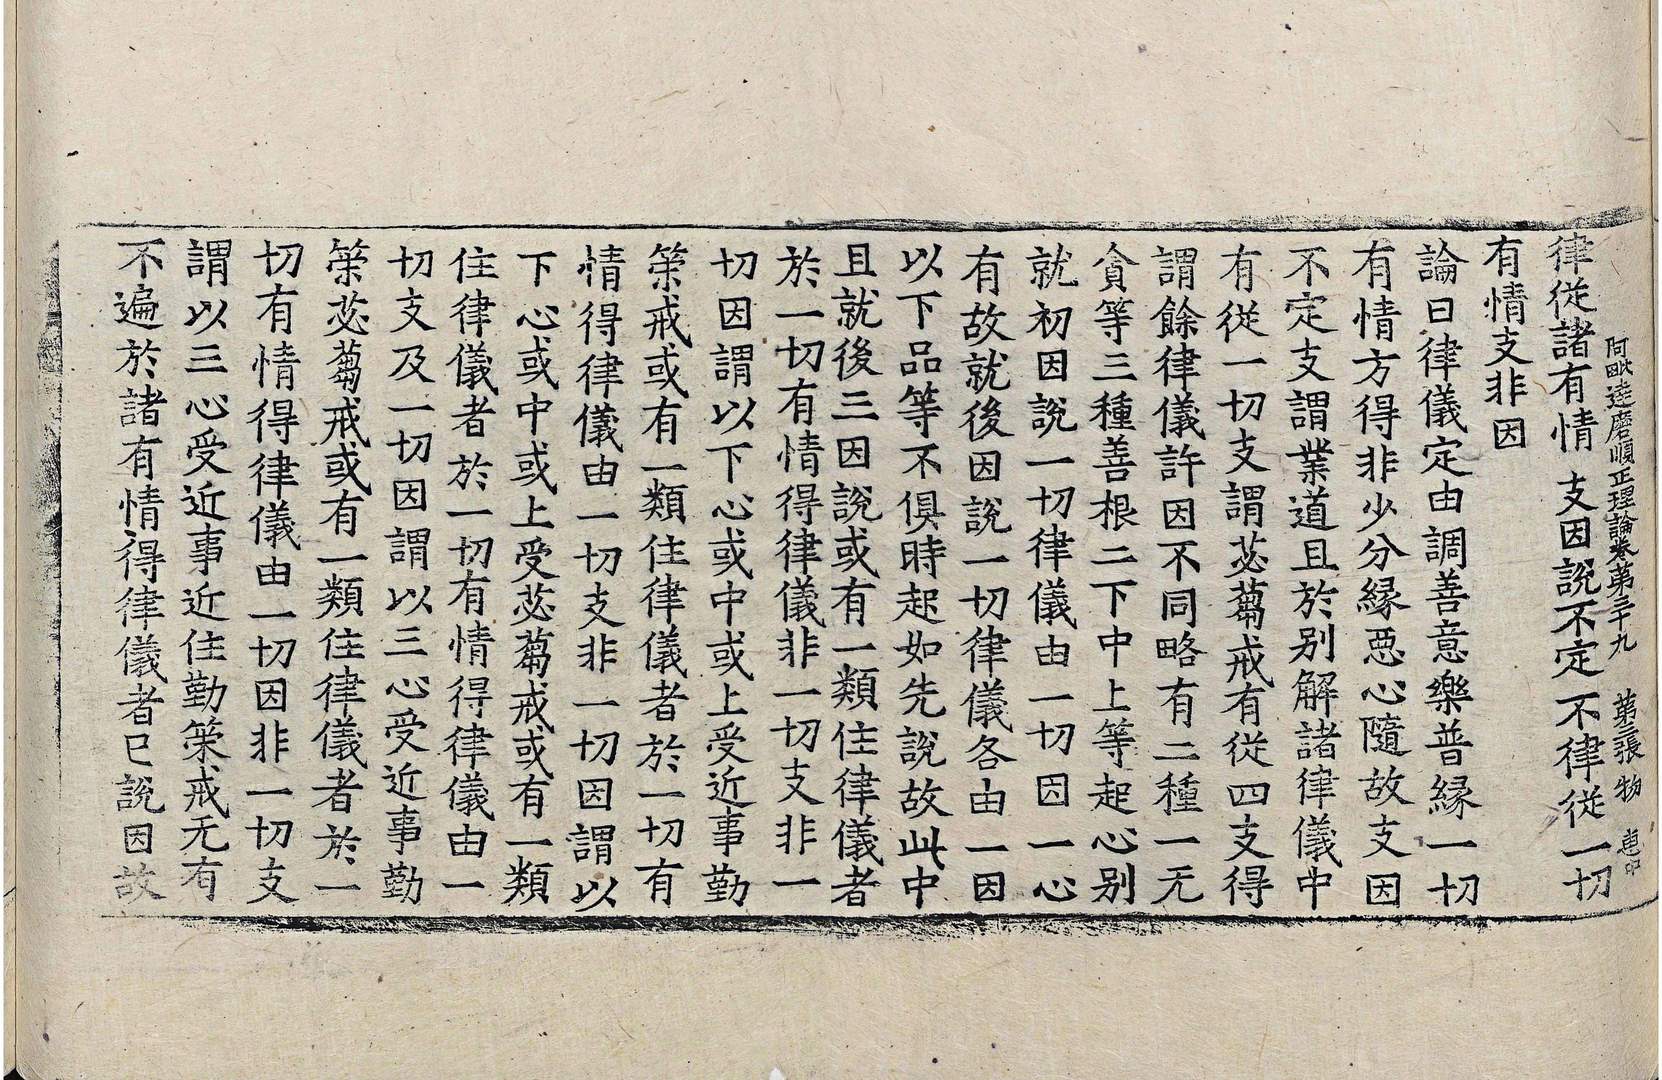 阿毗達磨順正理論卷第三十九　第三張　物
律從諸有情　支因說不定　不律從一切
有情支非因
論曰律儀定由調善意樂普緣一切
有情方得非少分緣惡心隨故支因
不定支謂業道且於别解諸律儀中
有從一切支謂苾蒭戒有從四支得
謂餘律儀許因不同略有二種一无
貪等三種善根二下中上等起心别
就初因說一切律儀由一切因一心
有故就後因說一切律儀各由一因
以下品等不俱時起如先說故此中
且就後三因說或有一類住律儀者
於一切有情得律儀非一切支非一
切因謂以下心或中或上受近事勤
策戒或有一類住律儀者於一切有
情得律儀由一切支非一切因謂以
下心或中或上受苾蒭戒或有一類
住律儀者於一切有情得律儀由一
切支及一切因謂以三心受近事勤
策苾蒭戒或有一類住律儀者於一
切有情得律儀由一切因非一切支
謂以三心受近事近住勤策戒无有
不遍於諸有情得律儀者已說因故